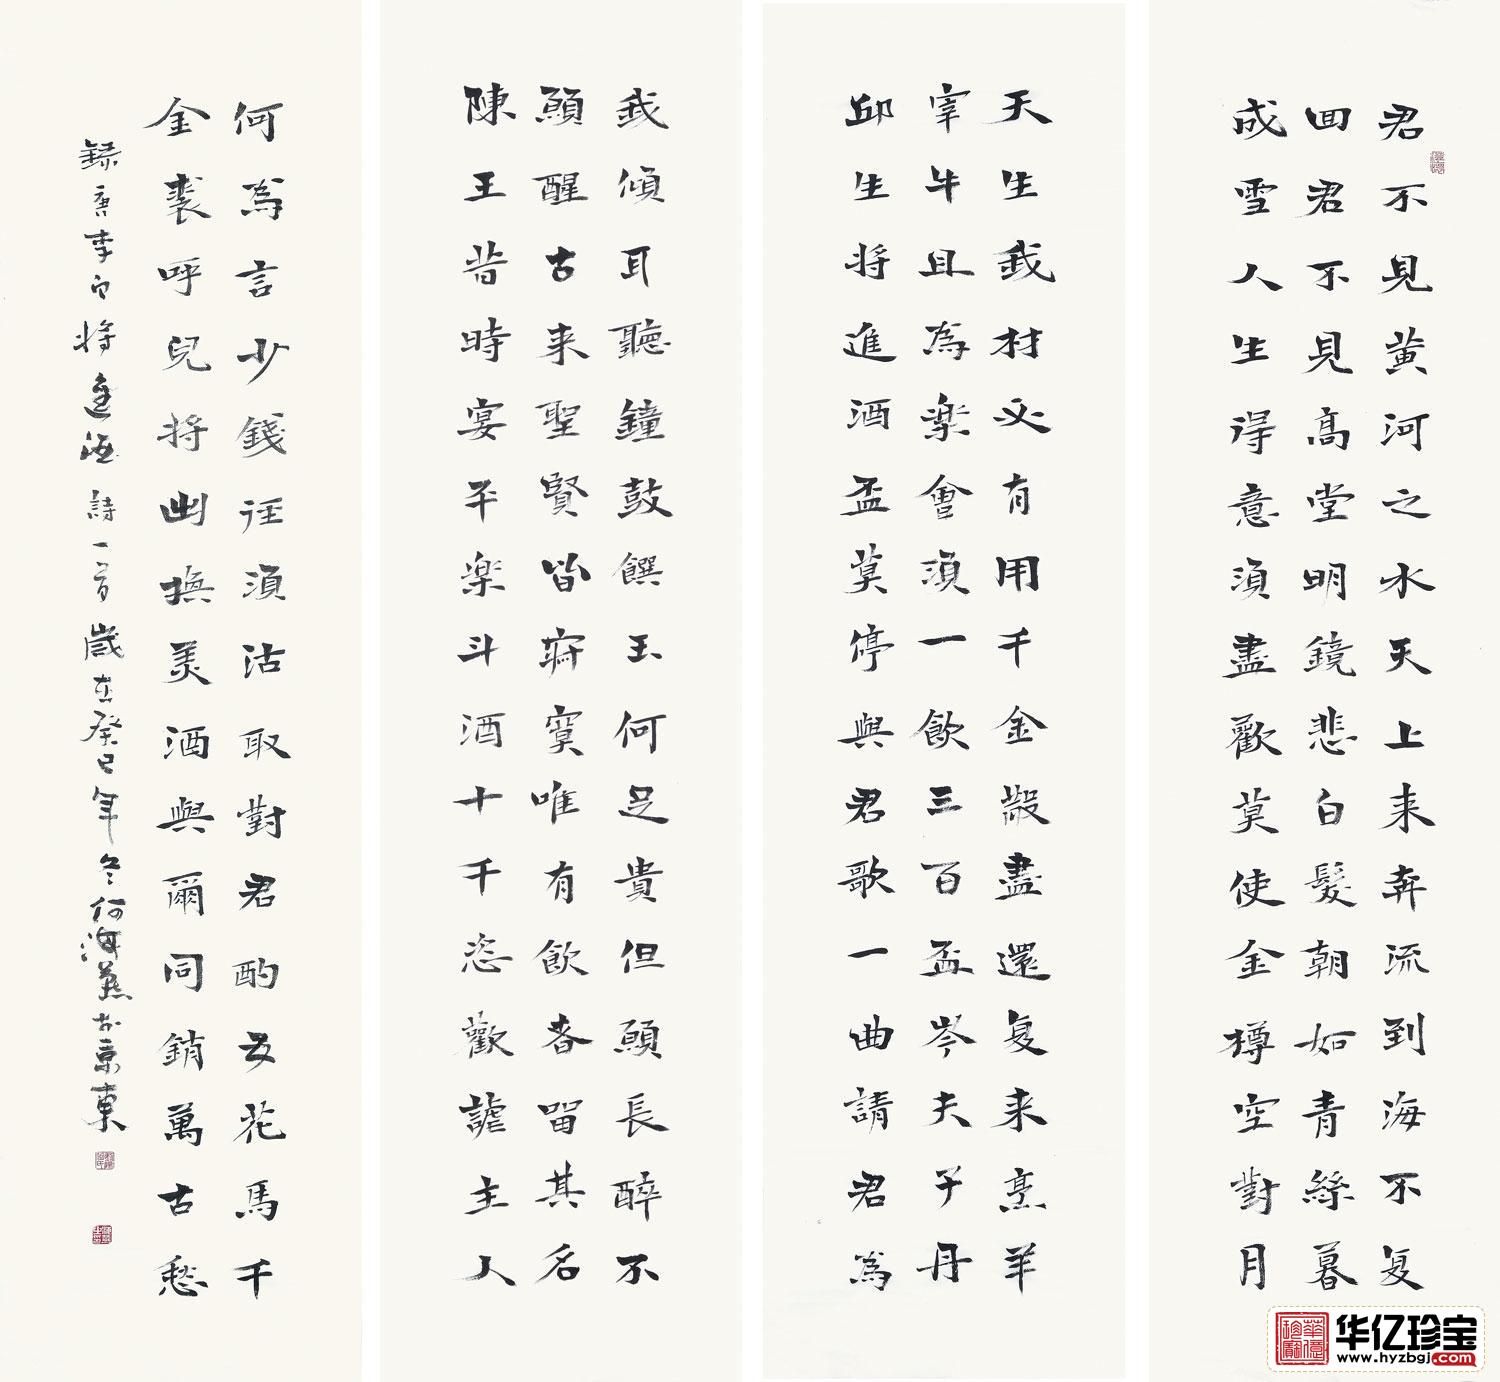 君不見黃河之水天上来奔流到海不复
回君不見高堂明鏡悲白髮朝如青絲暮
成雪人生得意須盡歡莫使金樽空對月
天生我材必有用千金散盡還复来烹羊
宰牛且為楽會須一飲三百盃岑夫子丹
邱生将進酒盃莫停與君歌一曲請君為
我傾耳聽鐘鼓饌玉何足貴但願長醉不
願醒古来聖賢皆寂寞唯有飲者留其名
陳王昔時宴平楽斗酒十千恣歡謔主人
何為言少錢徑須沽取對君酌五花馬千
金裘呼兒将出換美酒與爾同銷萬古愁
録唐李白将進酒詩一首歲在癸巳年冬何海燕於京東
华亿珍宝
www.hyzbgj.com